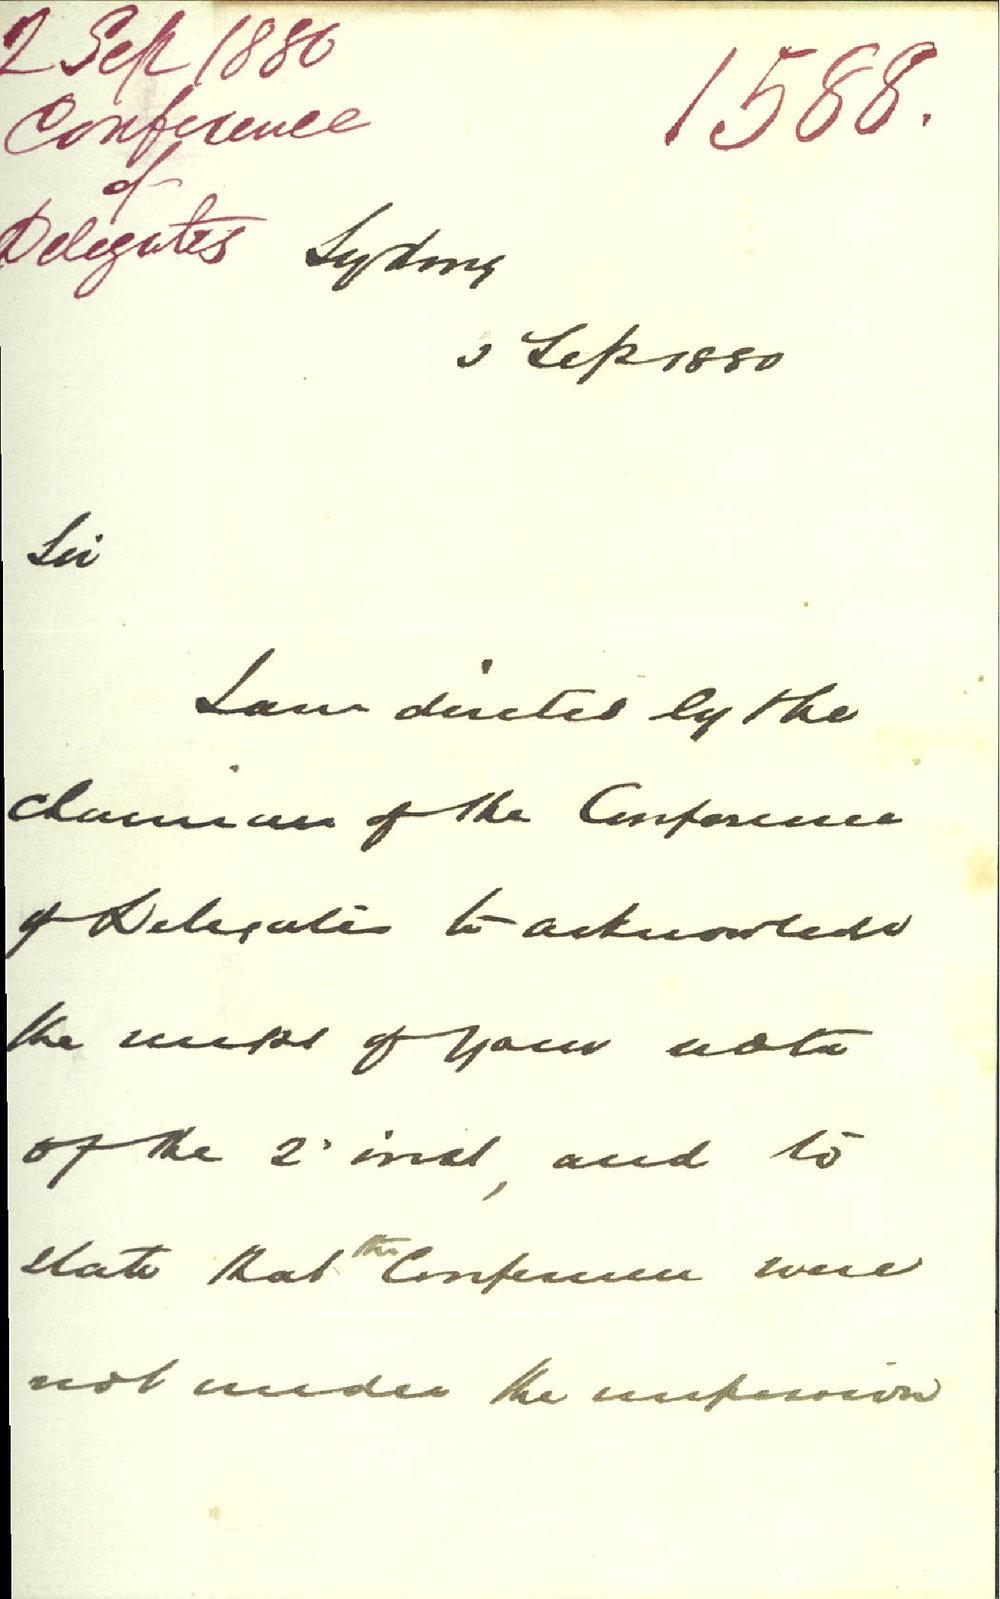 2 Sep 1880
Conference
of
Delegates
1588.
Sydney
3 Sep 1880
Sir
I am directed by the
Chairman of the Conference
of Delegates to acknowledge
the receipt of your note
of the 2 inst, and to
state that the Conference were
not under the impression